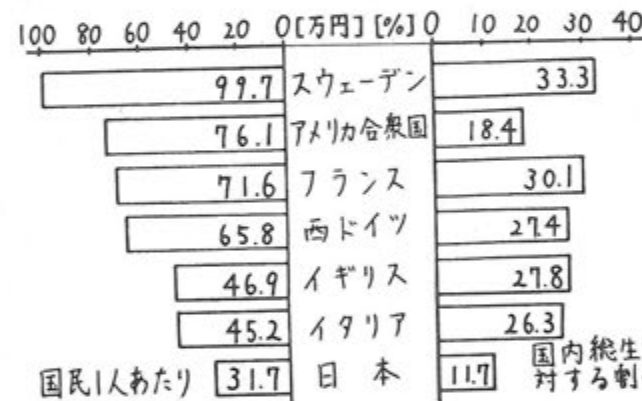 100 80 60 40 20 0 [万円] [%] 0 10 20 30 40
99.7 スウェーデン 33.3
76.1 アメリカ合衆国 18.4
71.6 フランス 30.1
65.8 西ドイツ 27.4
46.9 イギリス 27.8
45.2 イタリア 26.3
国民1人あたり 31.7 日本 11.7
国内総生
対する割